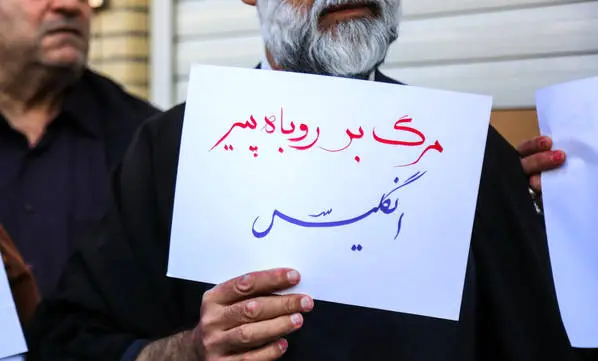 مرگ بر روباه پیر
انگلیس